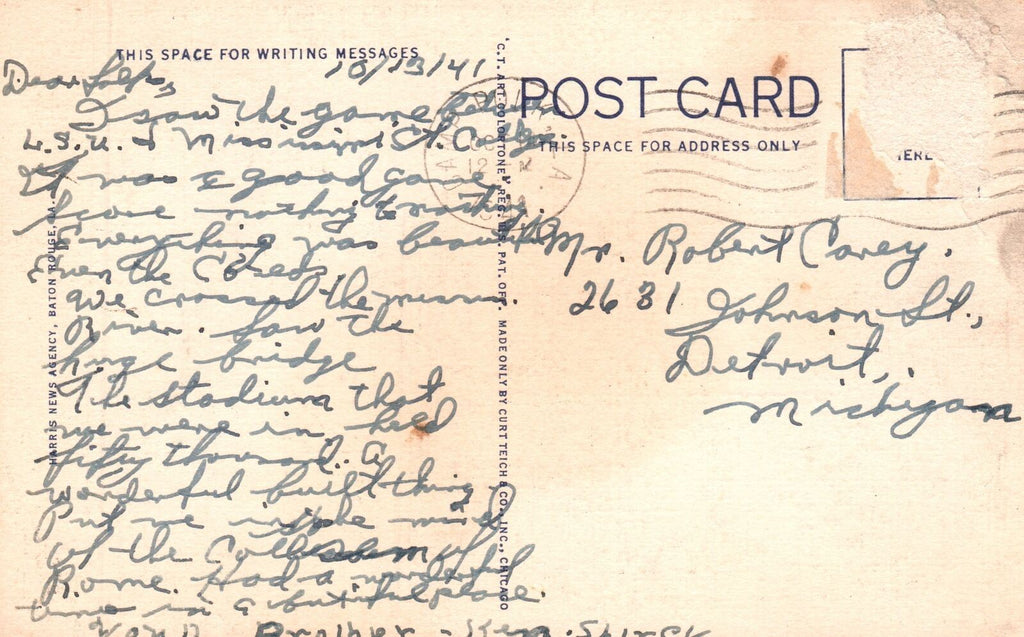 THIS SPACE FOR WRITING MESSAGES
10/13/41
Dear Folks,
I saw the game between
L.S.U. & Mississippi St. College.
It was a good game
score nothing to nothing.
Everything was beautiful
Even the Coeds.
We crossed the
River. Saw the
huge bridge
The stadium that
we were in, held
fifty thousand. A
wonderful built thing
Put me in the mind
of the of
Rome. Had a wonderful
time in a butiful place.
Your Brother - Ken.
HARRIS NEWS AGENCY, BATON ROUGE, LA.
"C.T. ART-COLORTONE" REG. U.S. PAT. OFF. MADE ONLY BY CURT TEICH & CO., INC., CHICAGO
POST CARD
THIS SPACE FOR ADDRESS ONLY
Mr. Robert Carey.
2631
Johnson St.,
Detroit,
Michigan